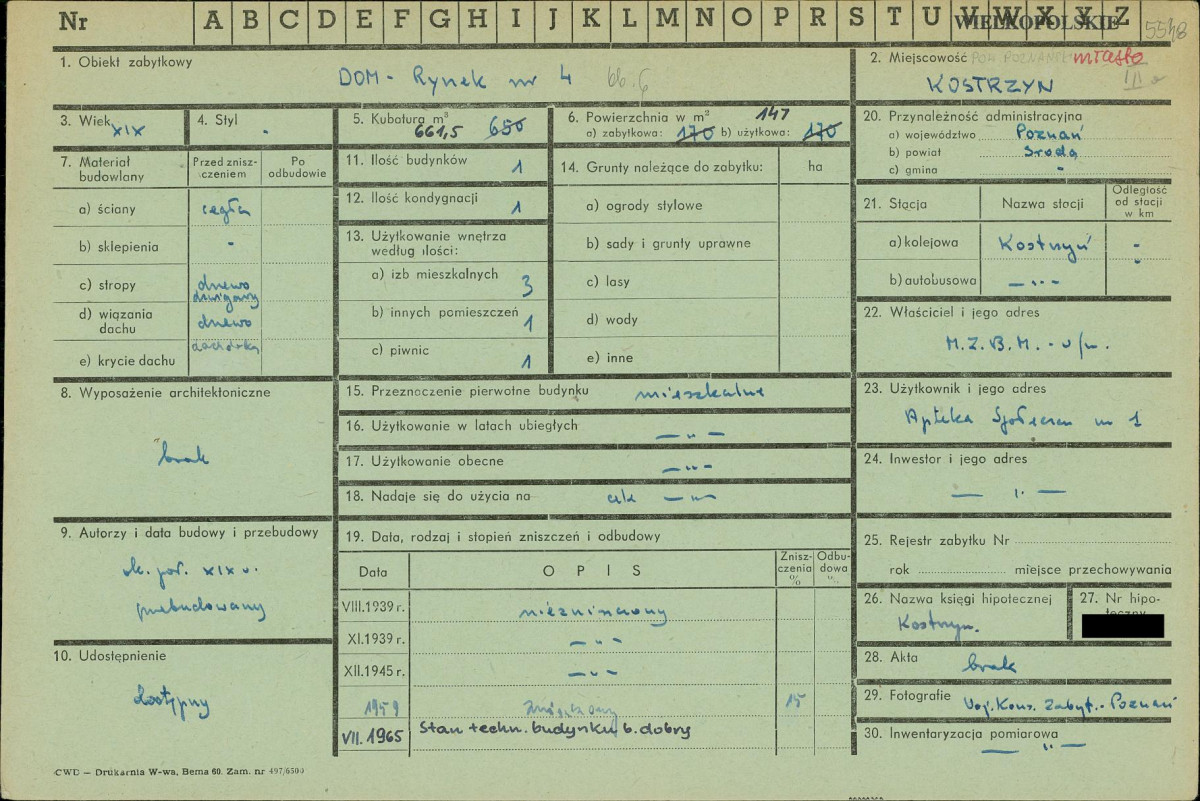 Nr A B C D E F G H I J K L M N O P R S T U V W X Y Z
WIELKOPOLSKIE
5548
1. Obiekt zabytkowy
DOM - Rynek nr 4
2. Miejscowość POW. POZNAŃSKI miasto
KOSTRZYN
3. Wiek XIX
4. Styl -
5. Kubatura m³
661,5 650
6. Powierzchnia w m² 147
a) zabytkowa: 170 b) użytkowa: 170
7. Materiał budowlany
Przed zniszczeniem
Po odbudowie
a) ściany cegła
b) sklepienia -
c) stropy drewno
dźwigary
d) wiązania dachu drewno
e) krycie dachu dachówka
8. Wyposażenie architektoniczne
brak
9. Autorzy i data budowy i przebudowy
ok. poł. XIX w.
przebudowany
10. Udostępnienie
dostępny
11. Ilość budynków 1
12. Ilość kondygnacji 1
13. Użytkowanie wnętrza według ilości:
a) izb mieszkalnych 3
b) innych pomieszczeń 1
c) piwnic 1
14. Grunty należące do zabytku: ha
a) ogrody stylowe
b) sady i grunty uprawne
c) lasy
d) wody
e) inne
15. Przeznaczenie pierwotne budynku mieszkalne
16. Użytkowanie w latach ubiegłych — „ —
17. Użytkowanie obecne — „ —
18. Nadaje się do użycia na cele — „ —
19. Data, rodzaj i stopień zniszczeń i odbudowy
Data O P I S Zniszczenia % Odbudowa %
VIII.1939 r. niezniszczony
XI.1939 r. — „ —
XII.1945 r. — „ —
1959 15
VII. 1965 Stan techn. budynku b. dobry
20. Przynależność administracyjna
a) województwo Poznań
b) powiat Środa
c) gmina -
21. Stacja Nazwa stacji Odległość od stacji w km
a) kolejowa Kostrzyń -
b) autobusowa — „ — -
22. Właściciel i jego adres
M.Z.B.M. - w/m.
23. Użytkownik i jego adres
Apteka Społeczn nr 1
24. Inwestor i jego adres
— „ —
25. Rejestr zabytku Nr
rok miejsce przechowywania
26. Nazwa księgi hipotecznej
Kostrzyn.
27. Nr hipoteczny
28. Akta brak
29. Fotografie Woj. Kons. Zabyt. - Poznań
30. Inwentaryzacja pomiarowa
— „ —
CWD — Drukarnia W-wa, Bema 60. Zam. nr 497/6500